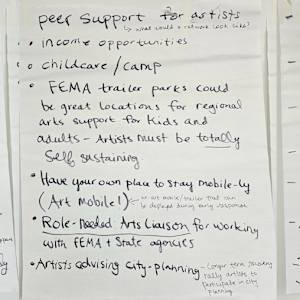 peer support for artists
↳ what would a network look like?
• income opportunities
• childcare/camp
• FEMA trailer parks could
be great locations for regional
arts support for kids and
adults - Artists must be totally
self sustaining
• Have your own place to stay mobile-ly
(Art Mobile!)
an art mobile/trailer that can
be deployed during early response
• Role-needed Arts Liaison for working
with FEMA + State agencies
• Artists advising city-planning
- Longer term recovery
rally artists to
participate in city
planning